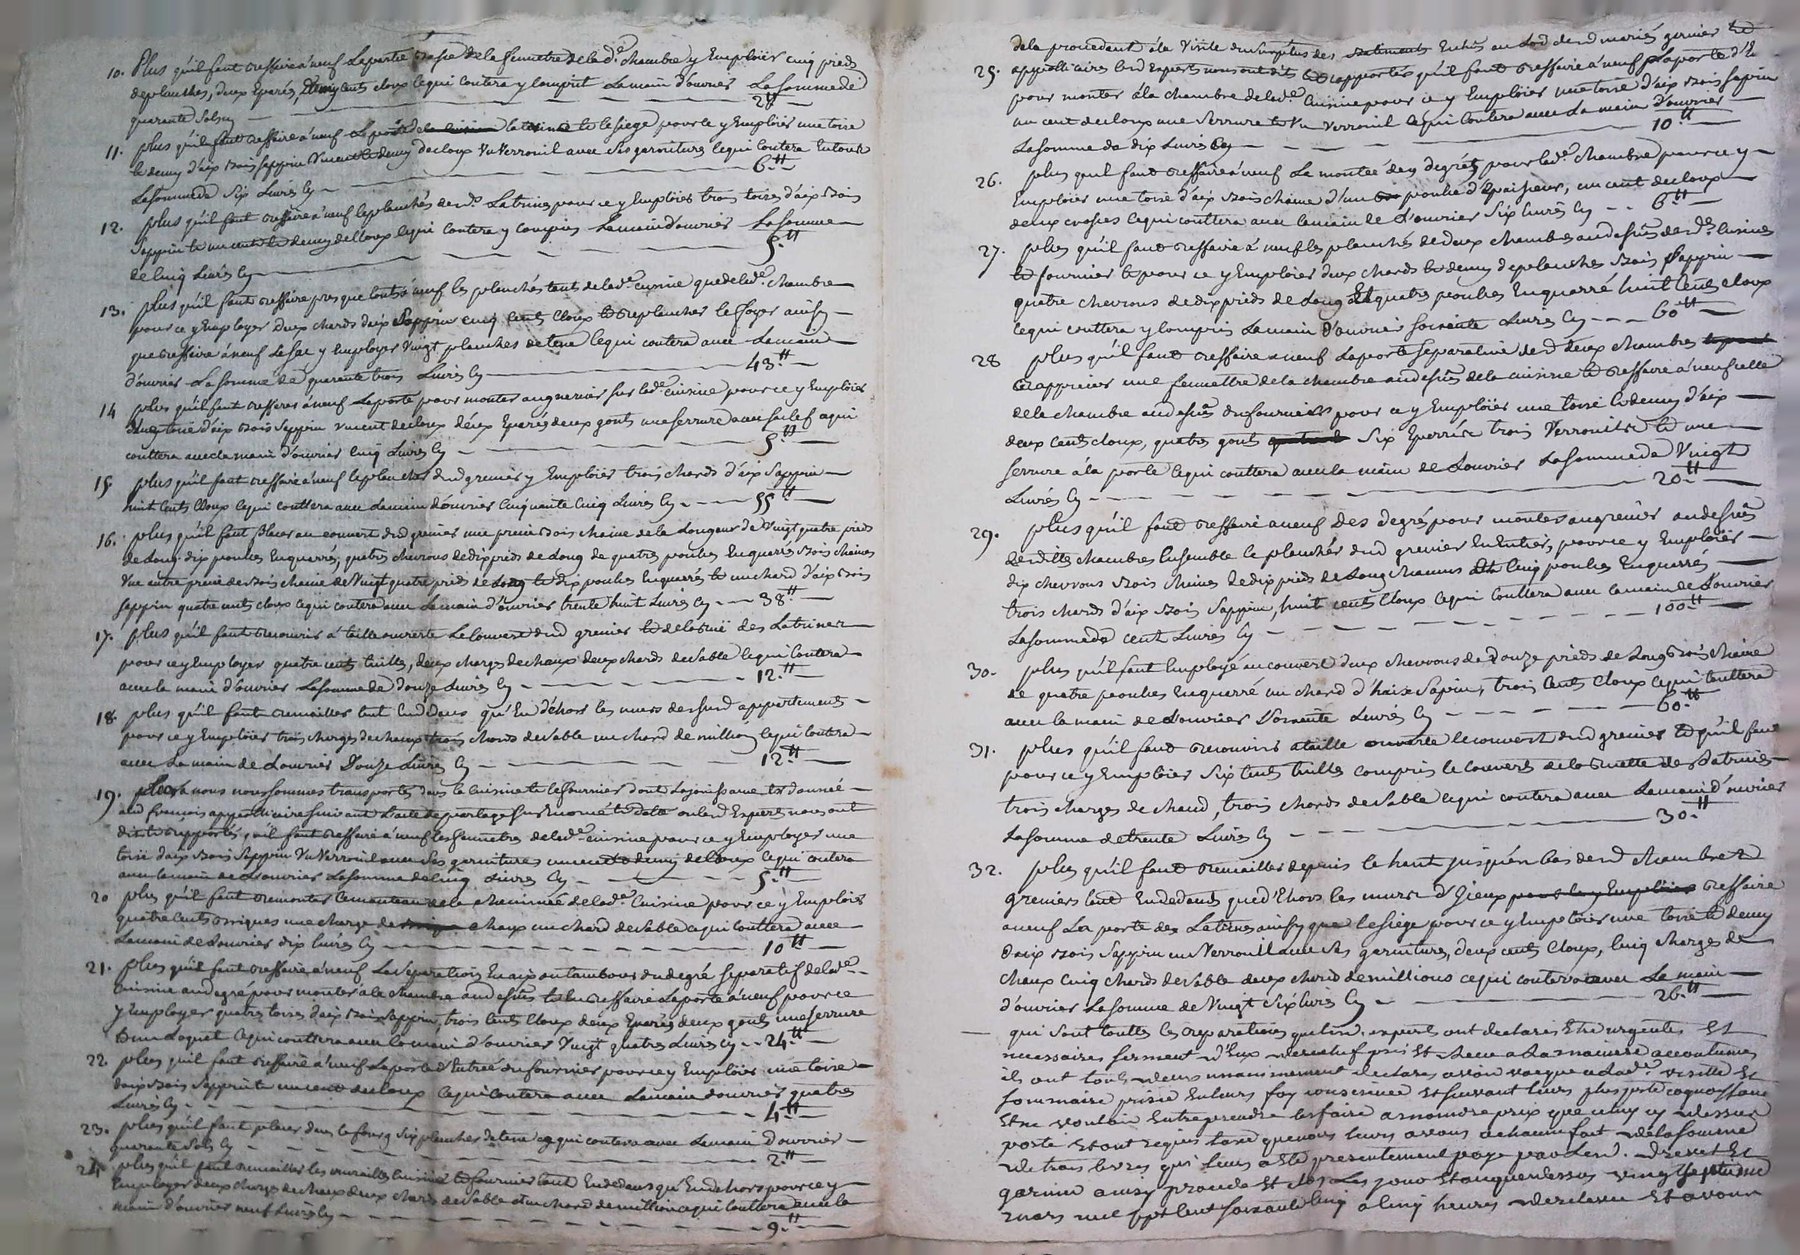 10. Plus qu'il faut reffaire à neuf la partie basse de la fenettre de lad.e chambre y Employer cinq pieds
de planches, deux Eparès, demy cent cloux ce qui contera y comprit la main d'ouvrier La somme de
quarante sols cy 2.#
11. plus qu'il faut reffaire à neuf la porte de la latrine et le siege, pour ce y Employer une toise
et demy d'aix bois sappin un cent et demy de cloux un verrouil avec ses garnitures ce qui contera En tout
La somme de six Livres Cy 6.#
12. plus qu'il faut reffaire à neuf le planché desd. Latrines pour ce y Employer trois toises d'aix bois
sappin et un cent et demy de cloux ce qui contera y compris la main d'ouvrier La somme
de cinq Livres Cy 5.#
13. plus qu'il faut reffaire presque tout à neuf les planchés tant de lad.e cuisine que de lad.e chambre
pour ce y Employer deux chards d'aix sappin cinq cents cloux et replancher le foyer ainsy
que reffaire à neuf le sac y Employer vingt planches de tene ce qui contera avec la main
d'ouvrier La somme de quarante trois Livres Cy 43.#
14 plus qu'il faut reffere à neuf la porte pour monter au grenier sur lad.e cuisine pour ce y Employer
une toise d'aix bois sappin un cent de cloux deux Eparès deux gonts une serrure avec sa clef ce qui
couttera avec la main d'ouvrier cinq Livres Cy 5.#
15 plus qu'il faut reffaire à neuf le plancher dud. grenier y Employer trois chards d'aix sappin
huit cents cloux ce qui couttera avec la main d'ouvrier cinquante cinq Livres Cy 55.#
16. plus qu'il faut placer au couvert dud grenier une piece bois chaine de la longeur de vingt quatre pieds
de long dix pouches En quarrés, quatre chevrons de dix pieds de long de quatre pouches En quarrés bois chaines
une autre piece de bois chaine de vingt quatre pieds de long et dix pouches En quarrés et un chard d'aix bois
sappin quatre cents cloux ce qui contera avec la main d'ouvrier trente huit Livres Cy 38.#
17. plus qu'il faut recouvrir à taille ouverte le couvert dud grenier et de celui des Latrines
pour ce y Employer quatre cents tuilles, deux charges de chaux deux chards de sable ce qui contera
avec la main d'ouvrier La somme de douze Livres Cy 12.#
18. plus qu'il faut remailler tant En dedans qu'En dehors les murs desdit appartements
pour ce y Employer trois charges de chaux trois chards de sable un chard de millions ce qui contera
avec la main de L'ouvrier Douze Livres Cy 12.#
19. plus nous nous sommes transportés dans la cuisine et le fournier dont La jouissance Est donnée
aud françois appotticaire suivant L'acte de partage sus Enoncé et daté ou lesd Experts nous ont
dit et rapportés, qu'il faut reffaire à neuf les fennettres de lad.e cuisine pour ce y Employer une
toise d'aix bois sappin un verrouil avec ses garnitures un cent et demy de cloux ce qui contera
avec la main de L'ouvrier La somme de cinq Livres Cy 5.#
20 plus qu'il faut remonter le manteau de la cheminée de lad.e Cuisine pour ce y Employer
quatre cents briques une charge de chaux un chard de sable ce qui couttera avec
la main de L'ouvrier dix Livres Cy 10.#
21. plus qu'il faut reffaire à neuf La separation En aix au tambour du degré separatif de lad.e
cuisine au degré pour monter à la chambre au dessus et reffaire La porte à neuf pour ce
y Employer quatre toises d'aix bois sappin, trois cents cloux deux Eparès deux gonts une serrure
Et un Loquet ce qui couttera avec la main d'ouvrier vingt quatre Livres Cy 24.#
22. plus qu'il faut reffaire à neuf La porte d'Entrée du fournier pour ce y Employer une toise
d'aix bois sappin et un cent de cloux ce qui contera avec la main d'ouvrier quatre
Livres Cy 4.#
23. plus qu'il faut placer dans le fourg six planches de tene ce qui contera avec la main d'ouvrier
quarante sols Cy 2.#
24 plus qu'il faut remailler les murailles cuisine et fournier tant En dedans qu'En dehors pour ce y
Employer deux charges de chaux deux chards de sable et un chard de million ce qui couttera avec la
main d'ouvrier neuf Livres Cy 9.#
de la procedant à la visite du surplus des batiments Echus au Lod dud marié grenier et
25. appotticaires lesd Experts nous ont dits et rapportés qu'il faut reffaire à neuf La porte
pour monter à la chambre de lad.e Cuisine pour ce y Employer une toise d'aix bois sapin
un cent de cloux une serrure et un verrouil ce qui Contera avec La main d'ouvrier
La somme de dix Livres Cy 10.#
26. plus qu'il faut reffaire à neuf La montée dey degrés pour lad.e chambre pour ce y
Employer une toise d'aix bois chaine d'un pouche d'Epaisseur, un cent de cloux
deux crosses ce qui couttera avec la main de L'ouvrier six Livres Cy 6.#
27. plus qu'il faut reffaire à neuf les planchés de deux chambres au dessus desd.e Cuisines
et fournier et pour ce y Employer deux chards et demy de planches bois sappin
quatre chevrons de dix pieds de Long Et quatre pouches En quarré huit Cents cloux
ce qui couttera y Comprin La main d'ouvrier soixante Livres Cy 60.#
28 plus qu'il faut reffaire à neuf La porte separative desd deux chambres
rapprecier une fennettre de la chambre au dessus de la cuisine et reffaire à neuf celle
de la chambre au dessus du fournier pour ce y Employer une toise et demy d'aix
deux cents cloux, quatre gonts six Equerres trois verrouils et une
serrure à la porte ce qui couttera avec la main de L'ouvrier La somme de vingt
Livres Cy 20.#
29. plus qu'il faut reffaire à neuf des degrés pour monter au grenier au dessus
desdittes chambres Ensemble le planchés dud grenier En Entier, pour ce y Employer
dix chevrons bois chaines de dix pieds de Long chacuns de Cinq pouches En quarré
trois chards d'aix bois sappin, huit cents Cloux ce qui couttera avec la main de L'ouvrier
La somme de cent Livres Cy 100.#
30. plus qu'il faut Employé au couvert deux chevrons de Douze pieds de Long bois chaine
de quatre pouches En quarré un chard d'haix sapin, trois Cents Cloux ce qui Couttera
avec la main de L'ouvrier soixante Livres Cy 60.#
31. plus qu'il faut recouvrir à taille ouverte le couvert dud grenier et qu'il faut
pour ce y Employer six cents tuilles compris le couvert de la de Latrines
trois charges de chaud, trois chards de sable ce qui contera avec La main d'ouvrier
La somme de trente Livres Cy 30.#
32. plus qu'il faut remailler depuis le haut jusqu'En bas desd chambres et
greniers tant En dedans que d'Ehors les murs d'Iceux reffaire
à neuf La porte des Latrines ainsy que le siège pour ce y Employer une toise et demy
d'aix bois sappin un verrouil avec ses garnitures, deux cents Cloux, Cinq charges de
chaux cinq chards de sable deux chards de millions ce qui contera avec La main
d'ouvrier La somme de Vingt six Livres Cy 26.#
qui sont touttes les reparations que lesd. experts ont declarés Etre urgentes Et
necessaires serment d'Eux derechef pris Et receu a La maniere accoutumée
ils ont tous deux unanimement declarés avoir vacqué a Lad.e visitte Et
sommaire prisie En leurs foy conscience Et suivant leurs plus juste cognoissance
Et ne vouloir Entreprendre les faire a moindre prix que celuy cy dessus
porté Et ont requis taxe que nous leurs avons a chacun fait de La somme
de trois livres qui leurs a Eté presentement payé par Led. Drevet Et
garnier ainsy procedé Et clos Les jour Et an que dessus vingt septieme
mars mil sept cent soixante cinq a cinq heures de relevée Et avons